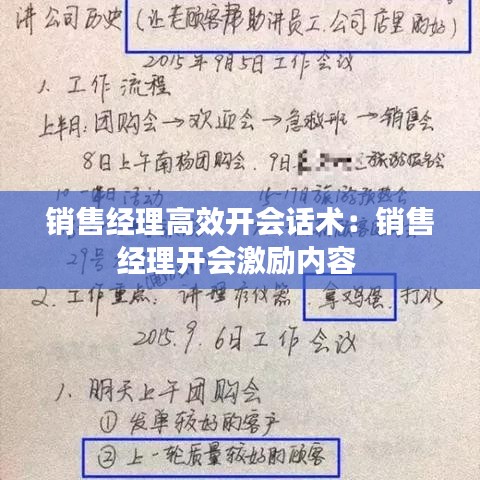 讲公司历史(让老顾客帮助讲员工、公司店里的好)
2015年9月5日工作会议
1、工作流程
上半月:团购会→欢迎会→急救班→销售会
8日上午南杨团购会、9日
销售经理高效开会话术：销售
经理开会激励内容
29号
2、工作重点：讲理疗仪器、拿鸡蛋、打水
2015.9.6日工作会议
1、明天上午团购会
①发单较好的客户
②上一轮质量较好的顾客